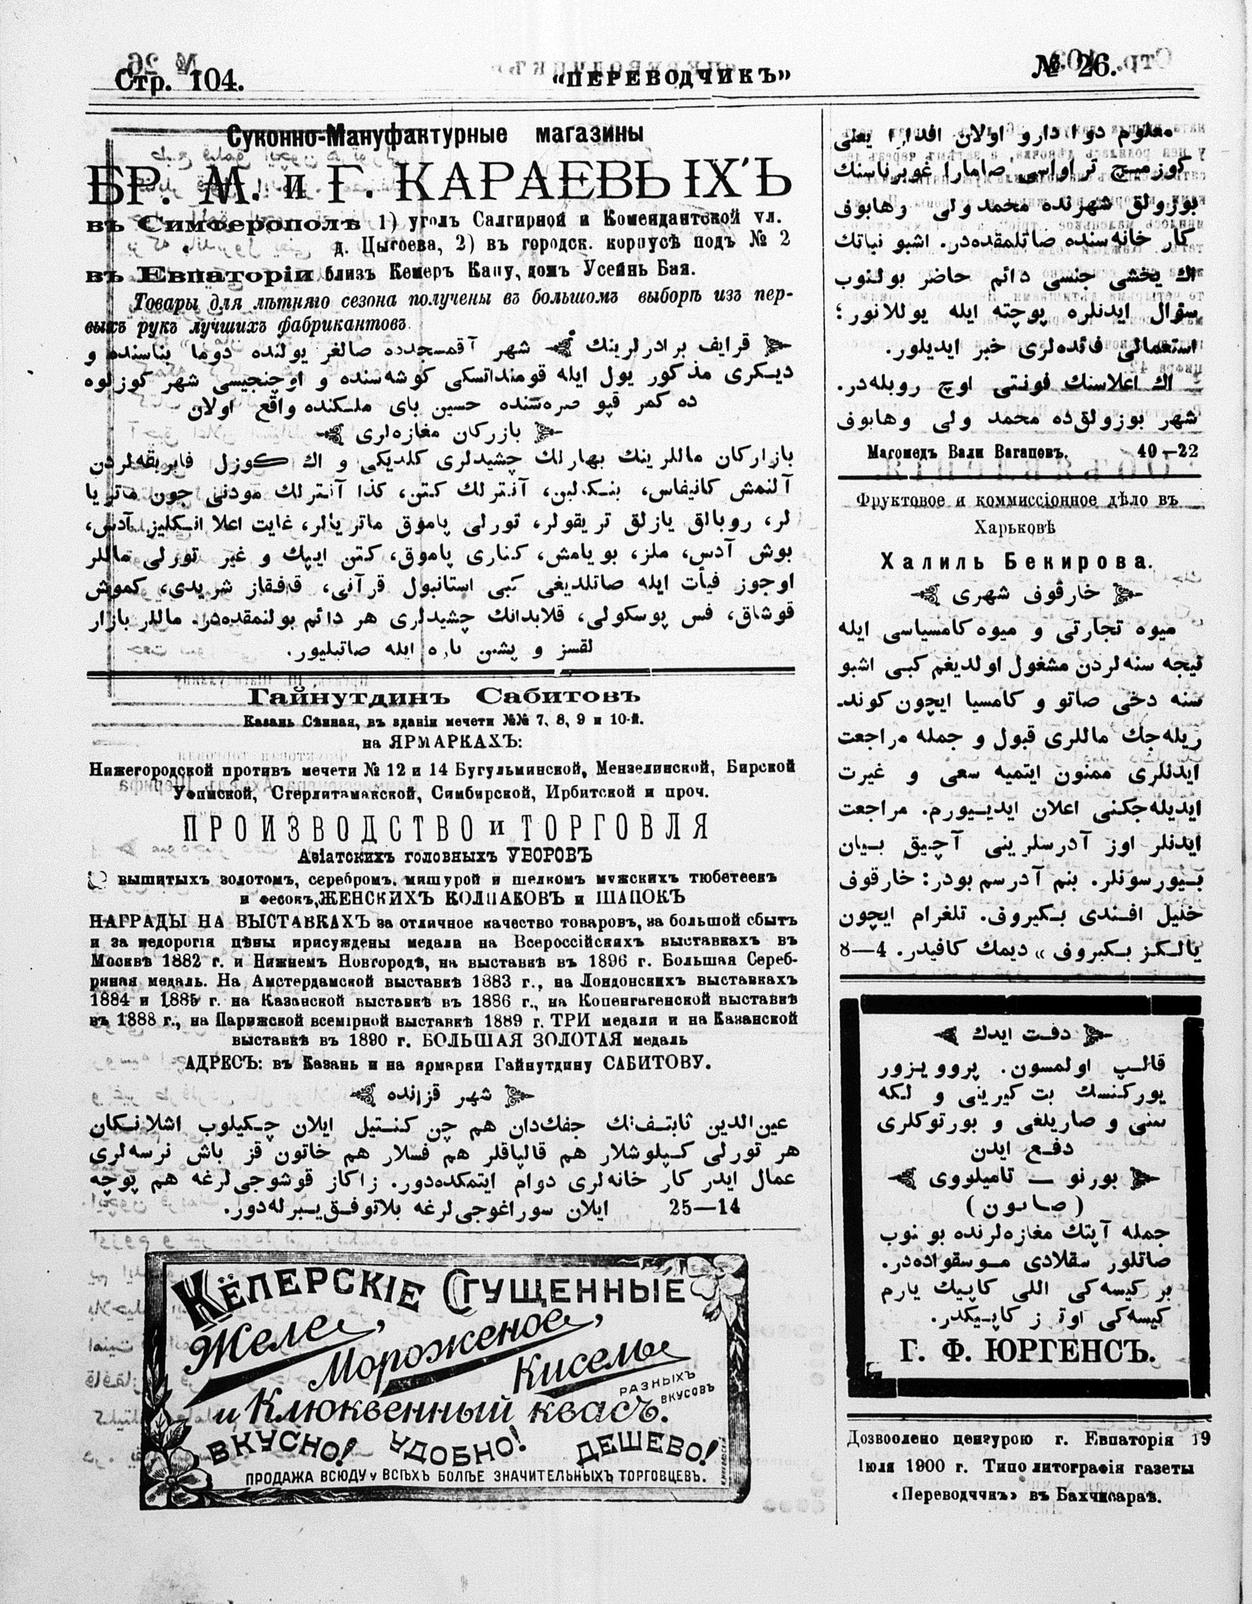 Стр. 104.
«ПЕРЕВОДЧИКЪ»
№ 26.
Суконно-Мануфактурные магазины
БР. М. и Г. КАРАЕВЫХЪ
въ Симферополѣ 1) уголъ Салгирной и Комендантской ул.
д. Цыгоева, 2) въ городск. корпусѣ подъ № 2
въ Евпаторіи близъ Кемеръ Капу, домъ Усеинъ Бая.
Товары для лѣтняго сезона получены въ большомъ выборѣ изъ пер-
выхъ рукъ лучшихъ фабрикантовъ.
قرايف برادرلرينك شهر آقمسجدده صالغر يولنده دوما بناسنده و
ديكرى مذكور يول ايله قومندانسكى كوشه‌سنده و اوچنجيسى شهر كوزلوه
ده كمر قپو صره‌سنده حسين باى ملكنده واقع اولان
بازركان مغازه‌لرى
بازاركان ماللرينك بهارلك چشيدلرى كلديكى و اك كوزل فابريقه‌لردن
لر، روبالق يازلق تريقولر، تورلى پاموق ماتريالر، غايت اعلا انكليز آدس،
بوش آدس، ملز، بويامش، كنارى پاموق، كتن ايپك و غير تورلى ماللر
اوجوز فيأت ايله صاتلديغى كبى استانبول قرآنى، قافقاز شريدى، كموش
قوشاق، فس پوسكولى، قلابدانك چشيدلرى هر دائم بولنمقده‌در. ماللر بازار
لقسز و پشين پاره ايله صاتيليور.
Гайнутдинъ Сабитовъ
Казань Сѣнная, въ зданіи мечети №№ 7, 8, 9 и 10-й.
на ЯРМАРКАХЪ:
Нижегородской противъ мечети № 12 и 14 Бугульминской, Мензелинской, Бирской
Уфимской, Стерлитамакской, Симбирской, Ирбитской и проч.
ПРОИЗВОДСТВО и ТОРГОВЛЯ
Азіатскихъ головныхъ УБОРОВЪ
вышитыхъ золотомъ, серебромъ, мишурой и шелкомъ мужскихъ тюбетеекъ
и фесокъ, ЖЕНСКИХЪ КОЛПАКОВЪ и ШАПОКЪ
НАГРАДЫ НА ВЫСТАВКАХЪ за отличное качество товаровъ, за большой сбытъ
и за недорогія цѣны присуждены медали на Всероссійскихъ выставкахъ въ
Москвѣ 1882 г. и Нижнемъ Новгородѣ, на выставкѣ въ 1896 г. Большая Сереб-
ряная медаль. На Амстердамской выставкѣ 1883 г., на Лондонскихъ выставкахъ
1884 и 1885 г. на Казанской выставкѣ въ 1886 г., на Копенгагенской выставкѣ
въ 1888 г., на Парижской всемірной выставкѣ 1889 г. ТРИ медали и на Казанской
выставкѣ въ 1890 г. БОЛЬШАЯ ЗОЛОТАЯ медаль
АДРЕСЪ: въ Казань и на ярмарки Гайнутдину САБИТОВУ.
شهر قزانده
عين‌الدين ثابتفنك جفك‌دان هم چن كنتيل ايلان چكيلوب اشلانكان
هر تورلى كپلوشلار هم قالپاقلر هم فسلار هم خاتون قز باش نرسه‌لرى
عمال ايدر كار خانه‌لرى دوام ايتمكده‌دور. زاكاز قوشوجى‌لرغه هم پوچه
ايلان سوراغوجى‌لرغه بلاتوفق‌يبرله‌دور. 25—14
КЁПЕРСКІЕ СГУЩЕННЫЕ
Желе,
Мороженое,
Кисель
РАЗНЫХЪ
ВКУСОВЪ
и Клюквенный квасъ.
ВКУСНО! УДОБНО! ДЕШЕВО!
ПРОДАЖА ВСЮДУ У ВСѢХЪ БОЛѢЕ ЗНАЧИТЕЛЬНЫХЪ ТОРГОВЦЕВЪ.
معلوم دوا دارو اولان افدرا يعنى
كوزميچ تراواسى صامارا غوبرناسنك
بوزولق شهرنده محمد ولى وهابوف
كار خانه‌سنده صاتلمقده‌در. اشبو نباتك
اك يخشى جنسى دائم حاضر بولنوب
سؤال ايدنلره پوچته ايله يوللانور؛
استعمالى فائده‌لرى خبر ايديلور.
اك اعلاسنك فونتى اوچ روبله‌در.
شهر بوزولق‌ده محمد ولى وهابوف
Магомедъ Вали Вагаповъ. 40—22
Фруктовое и коммиссіонное дѣло въ
Харьковѣ
Халиль Бекирова.
خارقوف شهرى
ميوه تجارتى و ميوه كامسياسى ايله
نيجه سنه‌لردن مشغول اولديغم كبى اشبو
سنه دخى صاتو و كامسيا ايچون كوند-
ريله‌جك ماللرى قبول و جمله مراجعت
ايدنلرى ممنون ايتميه سعى و غيرت
ايديله‌جكنى اعلان ايديورم. مراجعت
ايدنلر اوز آدرسلرينى آچيق بيان
بيورسونلر. بنم آدرسم بودر: خارقوف
خليل افندى بكيروف. تلغرام ايچون
يالكز بكيروف» ديمك كافيدر. 8—4
دقت ايدك
قالپ اولمسون. پروويزور
يوركنسك بت كيرينى و لكه
سنى و صاريلغى و بورتوكلرى
دفع ايدن
بورنو — تاميلووى
(صابون)
جمله آپتك مغازه‌لرنده بونوب
صاتلور سقلادى موسقواده‌در.
بر كيسه‌كى اللى كاپيك يارم
كيسه‌كى اوتوز كاپيكدر.
Г. Ф. ЮРГЕНСЪ.
Дозволено цензурою г. Евпаторія 19
Іюля 1900 г. Типолитографія газеты
«Переводчикъ» въ Бахчисараѣ.